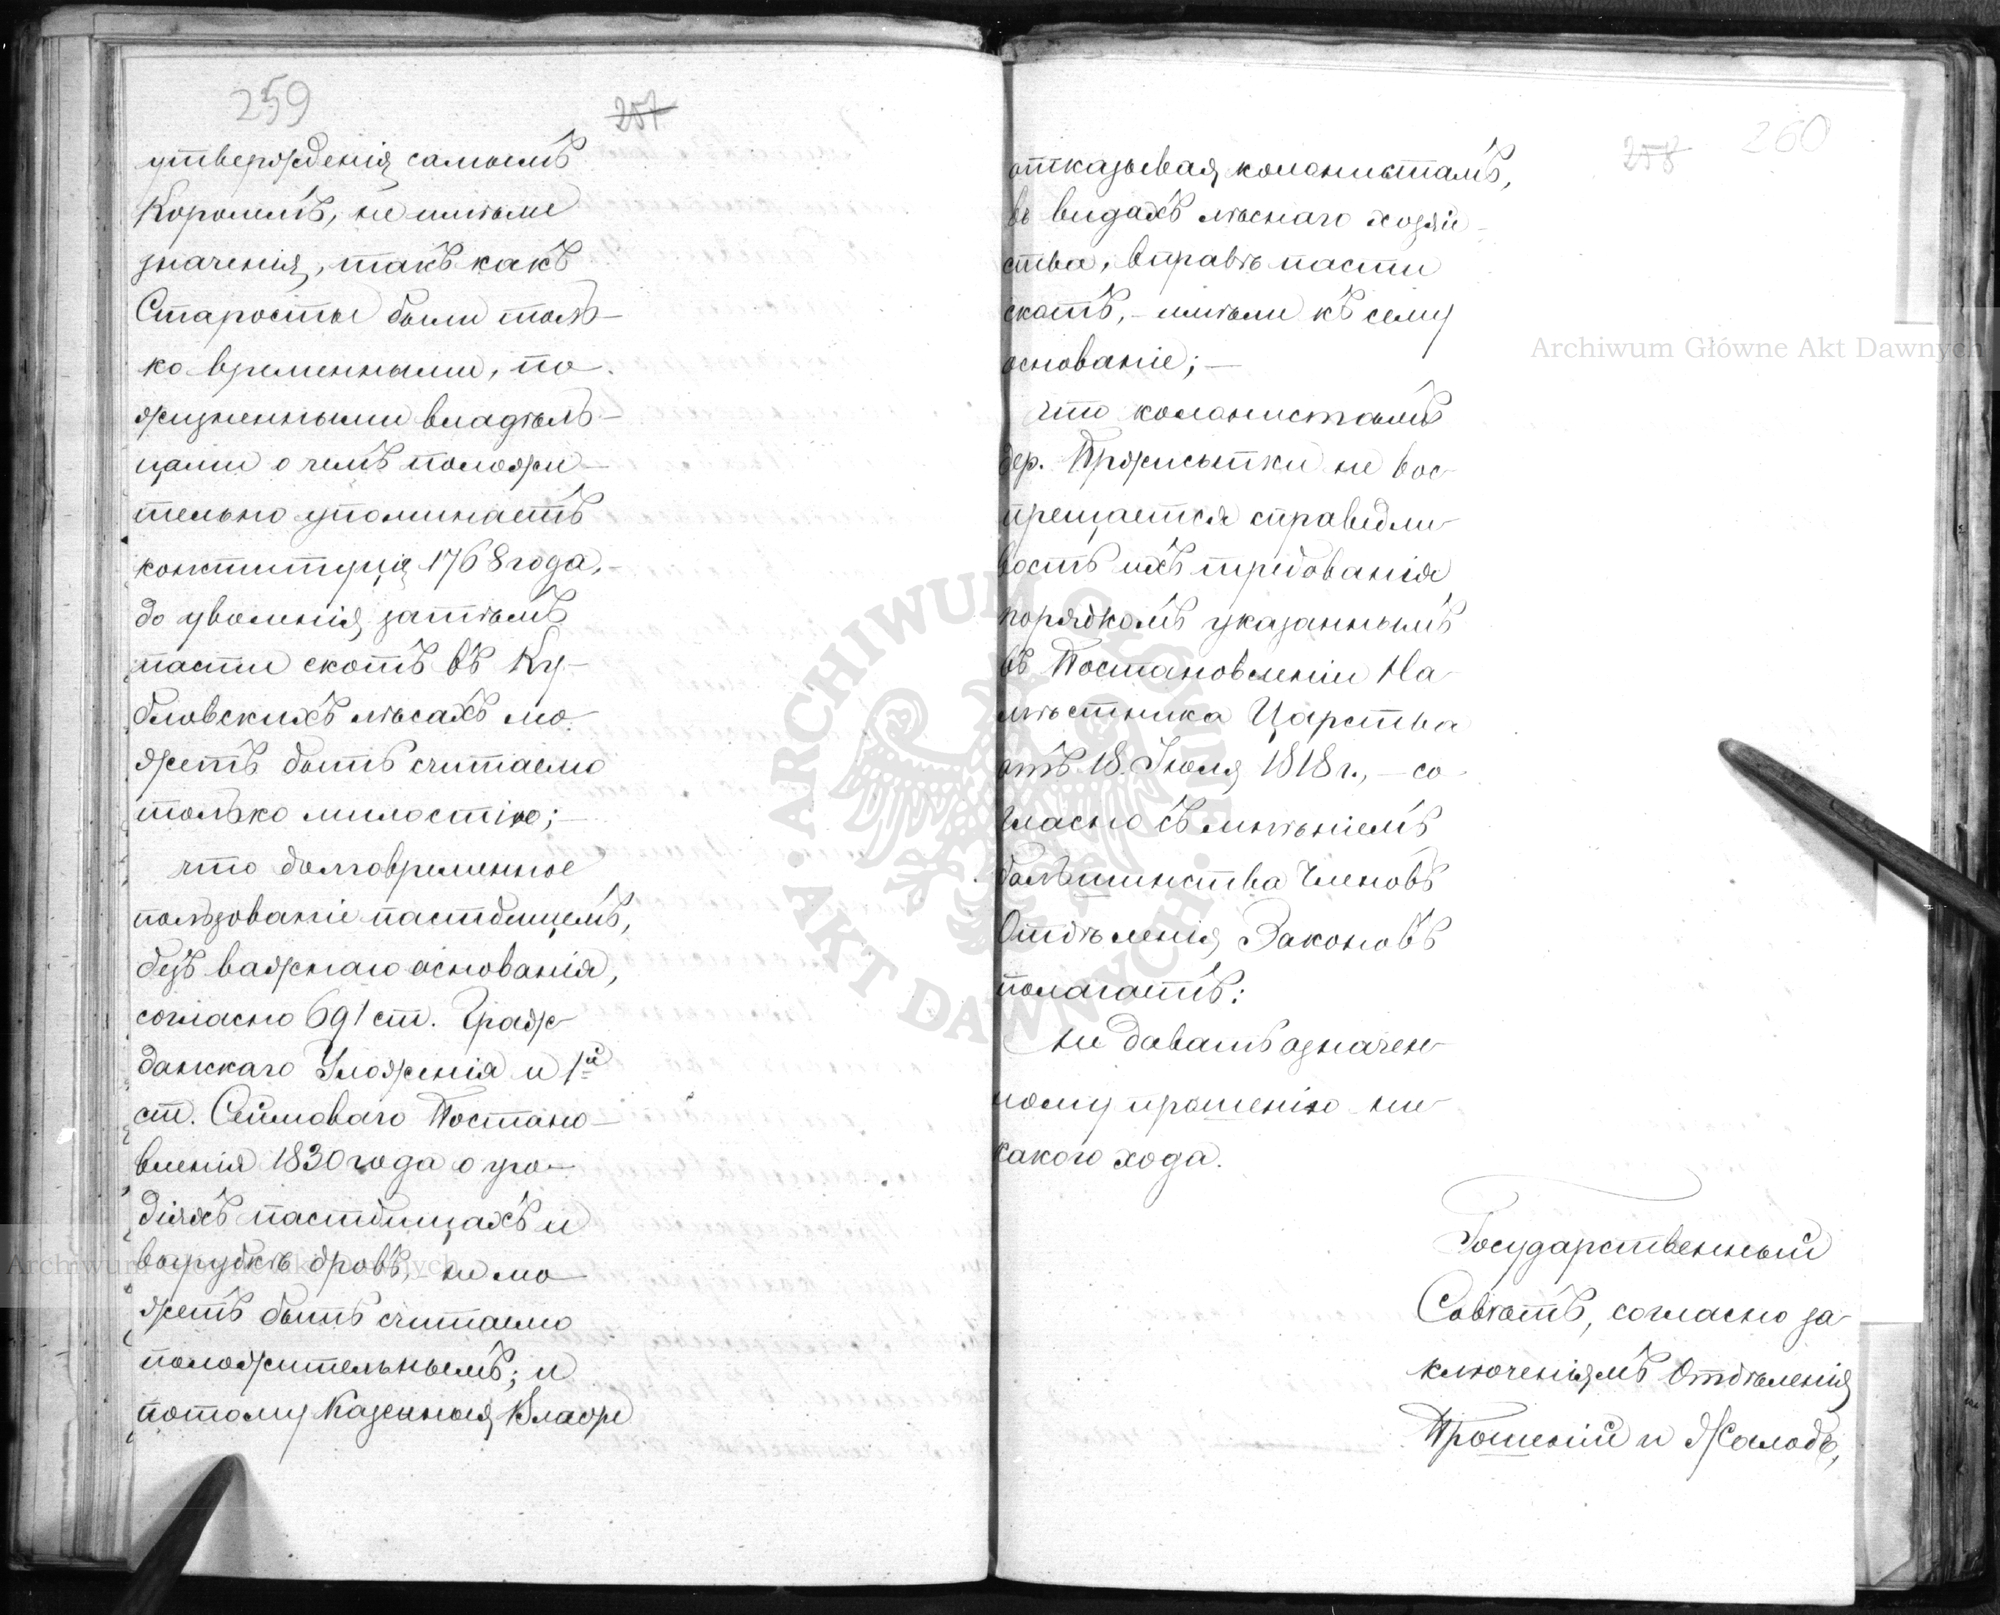 259
257
утвержденія самымъ
Королемъ, не имѣли
значенія, такъ какъ
Старосты были толь-
ко временными, по-
жизненными владѣль-
цами о чемъ положи-
тельно упоминаетъ
конституція 1768 года,-
до уволенія затѣмъ
пасти скотъ въ Ку-
бловскихъ лѣсахъ мо-
жетъ быть считаемо
только милостію;-
что долговременное
пользованіе пастбищемъ,
безъ важнаго основанія,
согласно 691 ст. Граж-
данскаго Уложенія и 1й
ст. Сеймоваго Постано-
вленія 1830 года о уго-
діяхъ пастбищахъ и
вырубкѣ дровъ, не мо-
жетъ быть считаемо
положительнымъ; и
потому Казенныя Власти
258
260
отказывая колонистамъ,
въ видахъ лѣснаго хозяй-
ства, вправѣ пасти
скотъ, - имѣли къ сему
основаніе; -
что колонистамъ
дер. Пржисыпки не вос-
прещается справедли-
вость ихъ требованія
порядкомъ указаннымъ
въ Постановленіи На-
мѣстника Царства
отъ 18. Іюля 1818 г., - со-
гласно съ мнѣніемъ
большинства Членовъ
Отдѣленія Законовъ
полагаетъ:
не давать означен-
ному прошенію ни-
какого хода.
Государственный
Совѣтъ, согласно за-
ключеніямъ Отдѣленія
Прошеній и Жалобъ,
Archiwum Główne Akt Dawnych
Archiwum Główne Akt Dawnych
· ARCHIWUM GŁÓWNE · AKT DAWNYCH ·